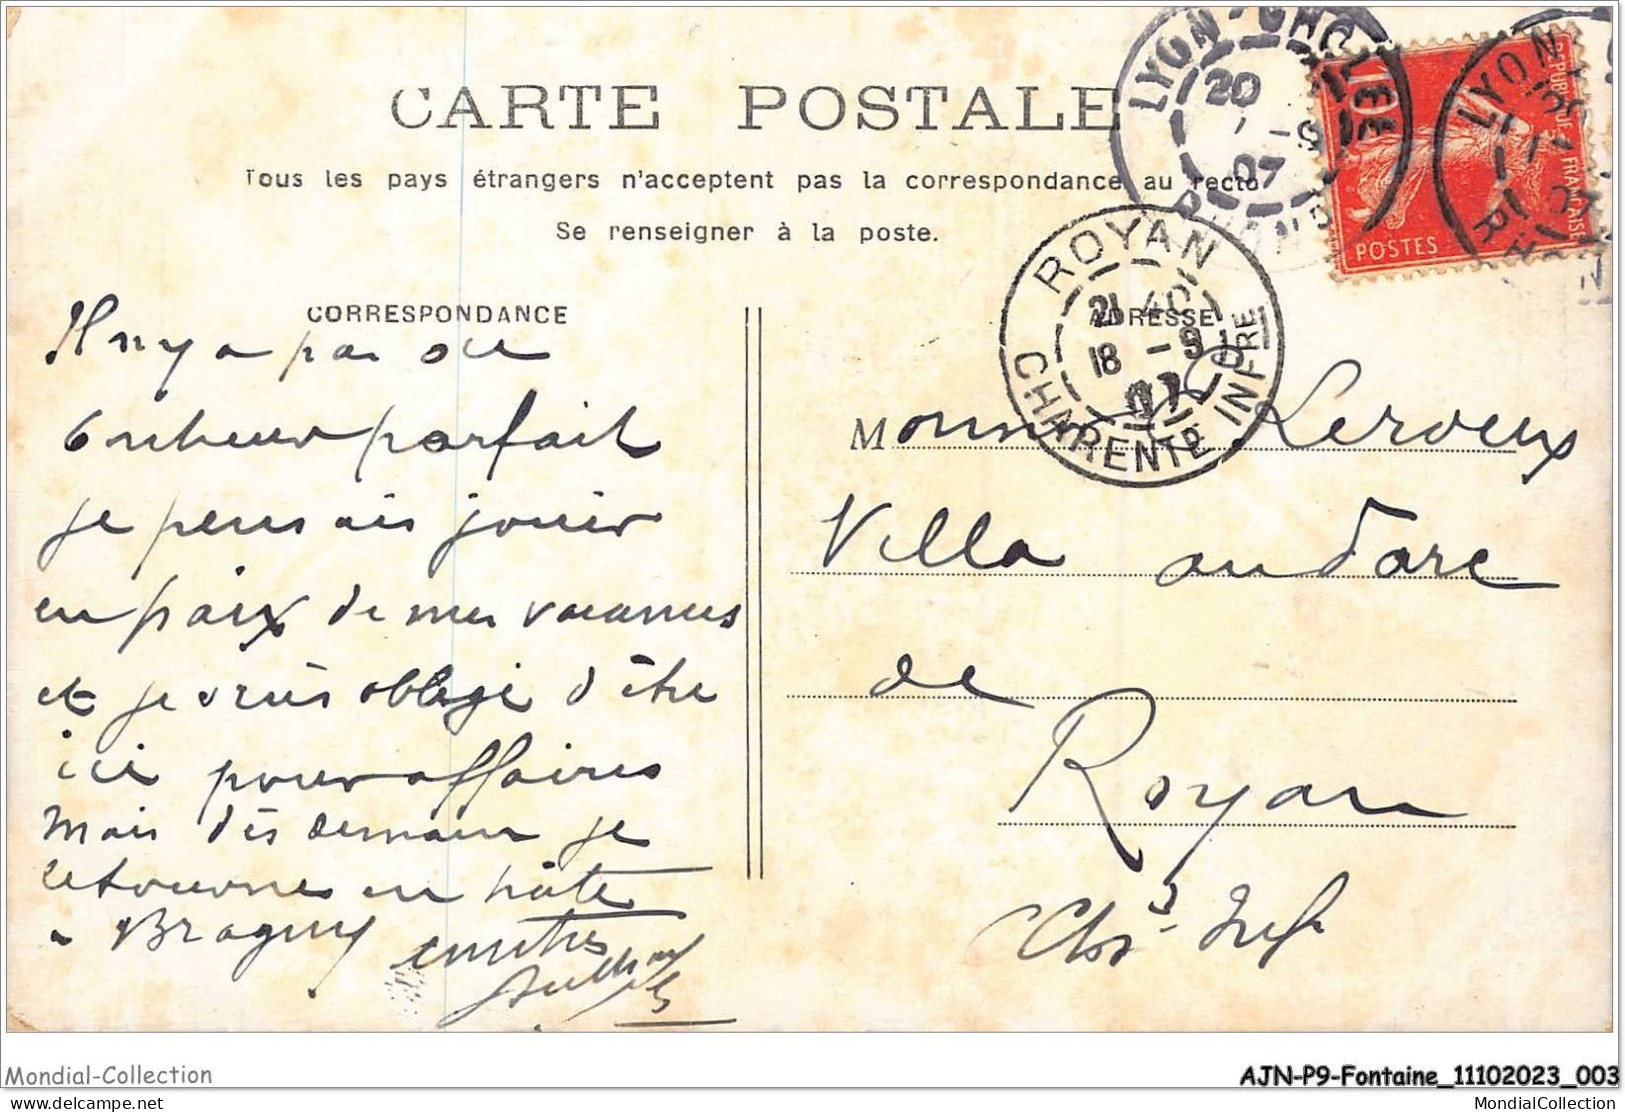 CARTE POSTALE
Tous les pays étrangers n'acceptent pas la correspondance au recto
Se renseigner à la poste.
LYON
20
07
10
REPUBLIQUE FRANÇAISE
POSTES
LYON
RHONE
ROYAN
21 40
18 -9
07
CHARENTE INFRE
CORRESPONDANCE
Il n'y a pas de
bonheur parfait
je pensais jouir
en paix de mes vacances
et je suis obligé d'être
ici pour affaires
mais dès demain je
retourne en hâte
à Bragny
ADRESSE
Monsieur Leroeux
Villa
de
Royan
Chte Infre
Mondial-Collection
AJN-P9-Fontaine_11102023_003
www.delcampe.net
MondialCollection